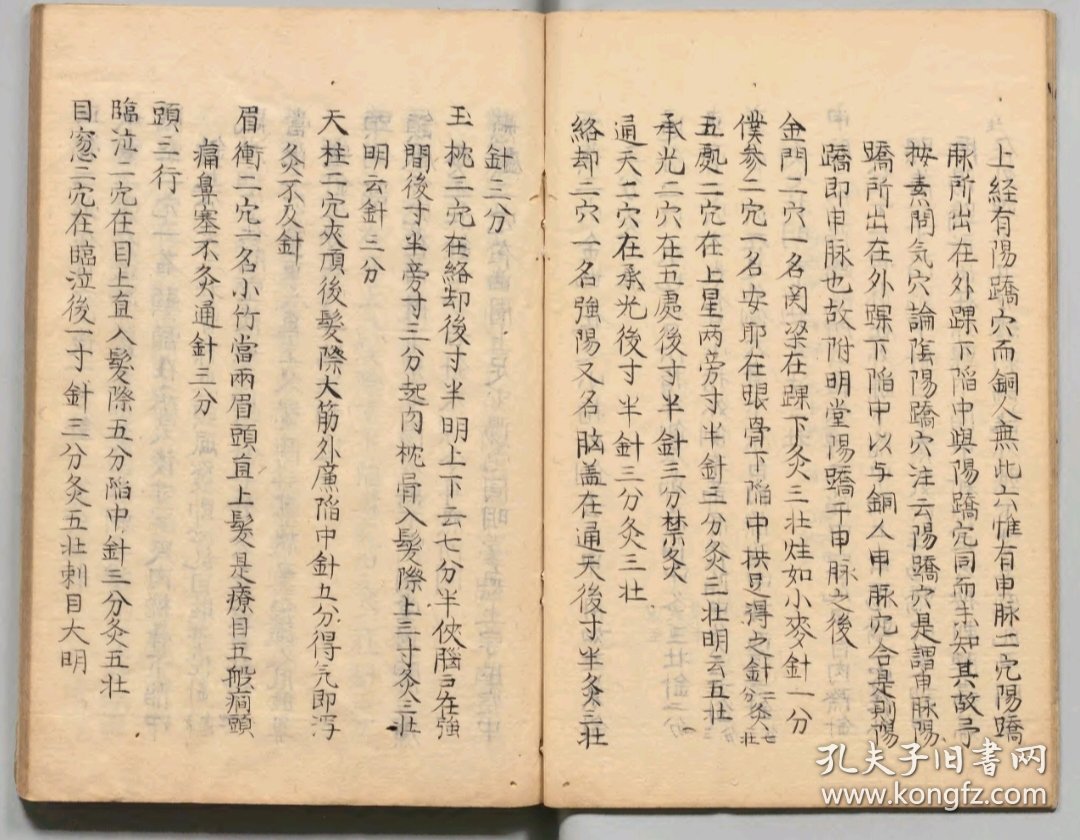 上経有陽蹻穴而銅人無此穴惟有申脉二穴陽蹻
脉所出在外踝下陷中與陽蹻穴同而未知其故予
按素問気穴論陰陽蹻穴注云陽蹻穴是謂申脉陽
蹻所出在外踝下陷中以与銅人申脉穴合是則陽
蹻即申脉也故附明堂陽蹻于申脉之後
金門二穴一名関梁在踝下灸三壮炷如小麥針一分
僕参二穴一名安耶在跟骨下陷中拱足得之針二分灸七壮
五處二穴在上星两旁寸半針三分灸三壮明云五壮
承光二穴在五處後寸半針三分禁灸
通天二穴在承光後寸半針三分灸三壮
絡却二穴一名強陽又名脳盖在通天後寸半灸三壮
針三分
玉枕二穴在絡却後寸半明上下云七分半俠腦戶在強
間後寸半旁寸三分起肉枕骨入髮際上三寸灸三壮
明云針三分
天柱二穴夾項後髮際大筋外廉陷中針五分得気即瀉
灸不及針
眉衝二穴一名小竹當兩眉頭直上髮是療目五般癎頭
痛鼻塞不灸通針三分
頭三行
臨泣二穴在目上直入髮際五分陷中針三分灸五壮
目窓二穴在臨泣後一寸針三分灸五壮刺目大明
孔夫子旧书网
www.kongfz.com